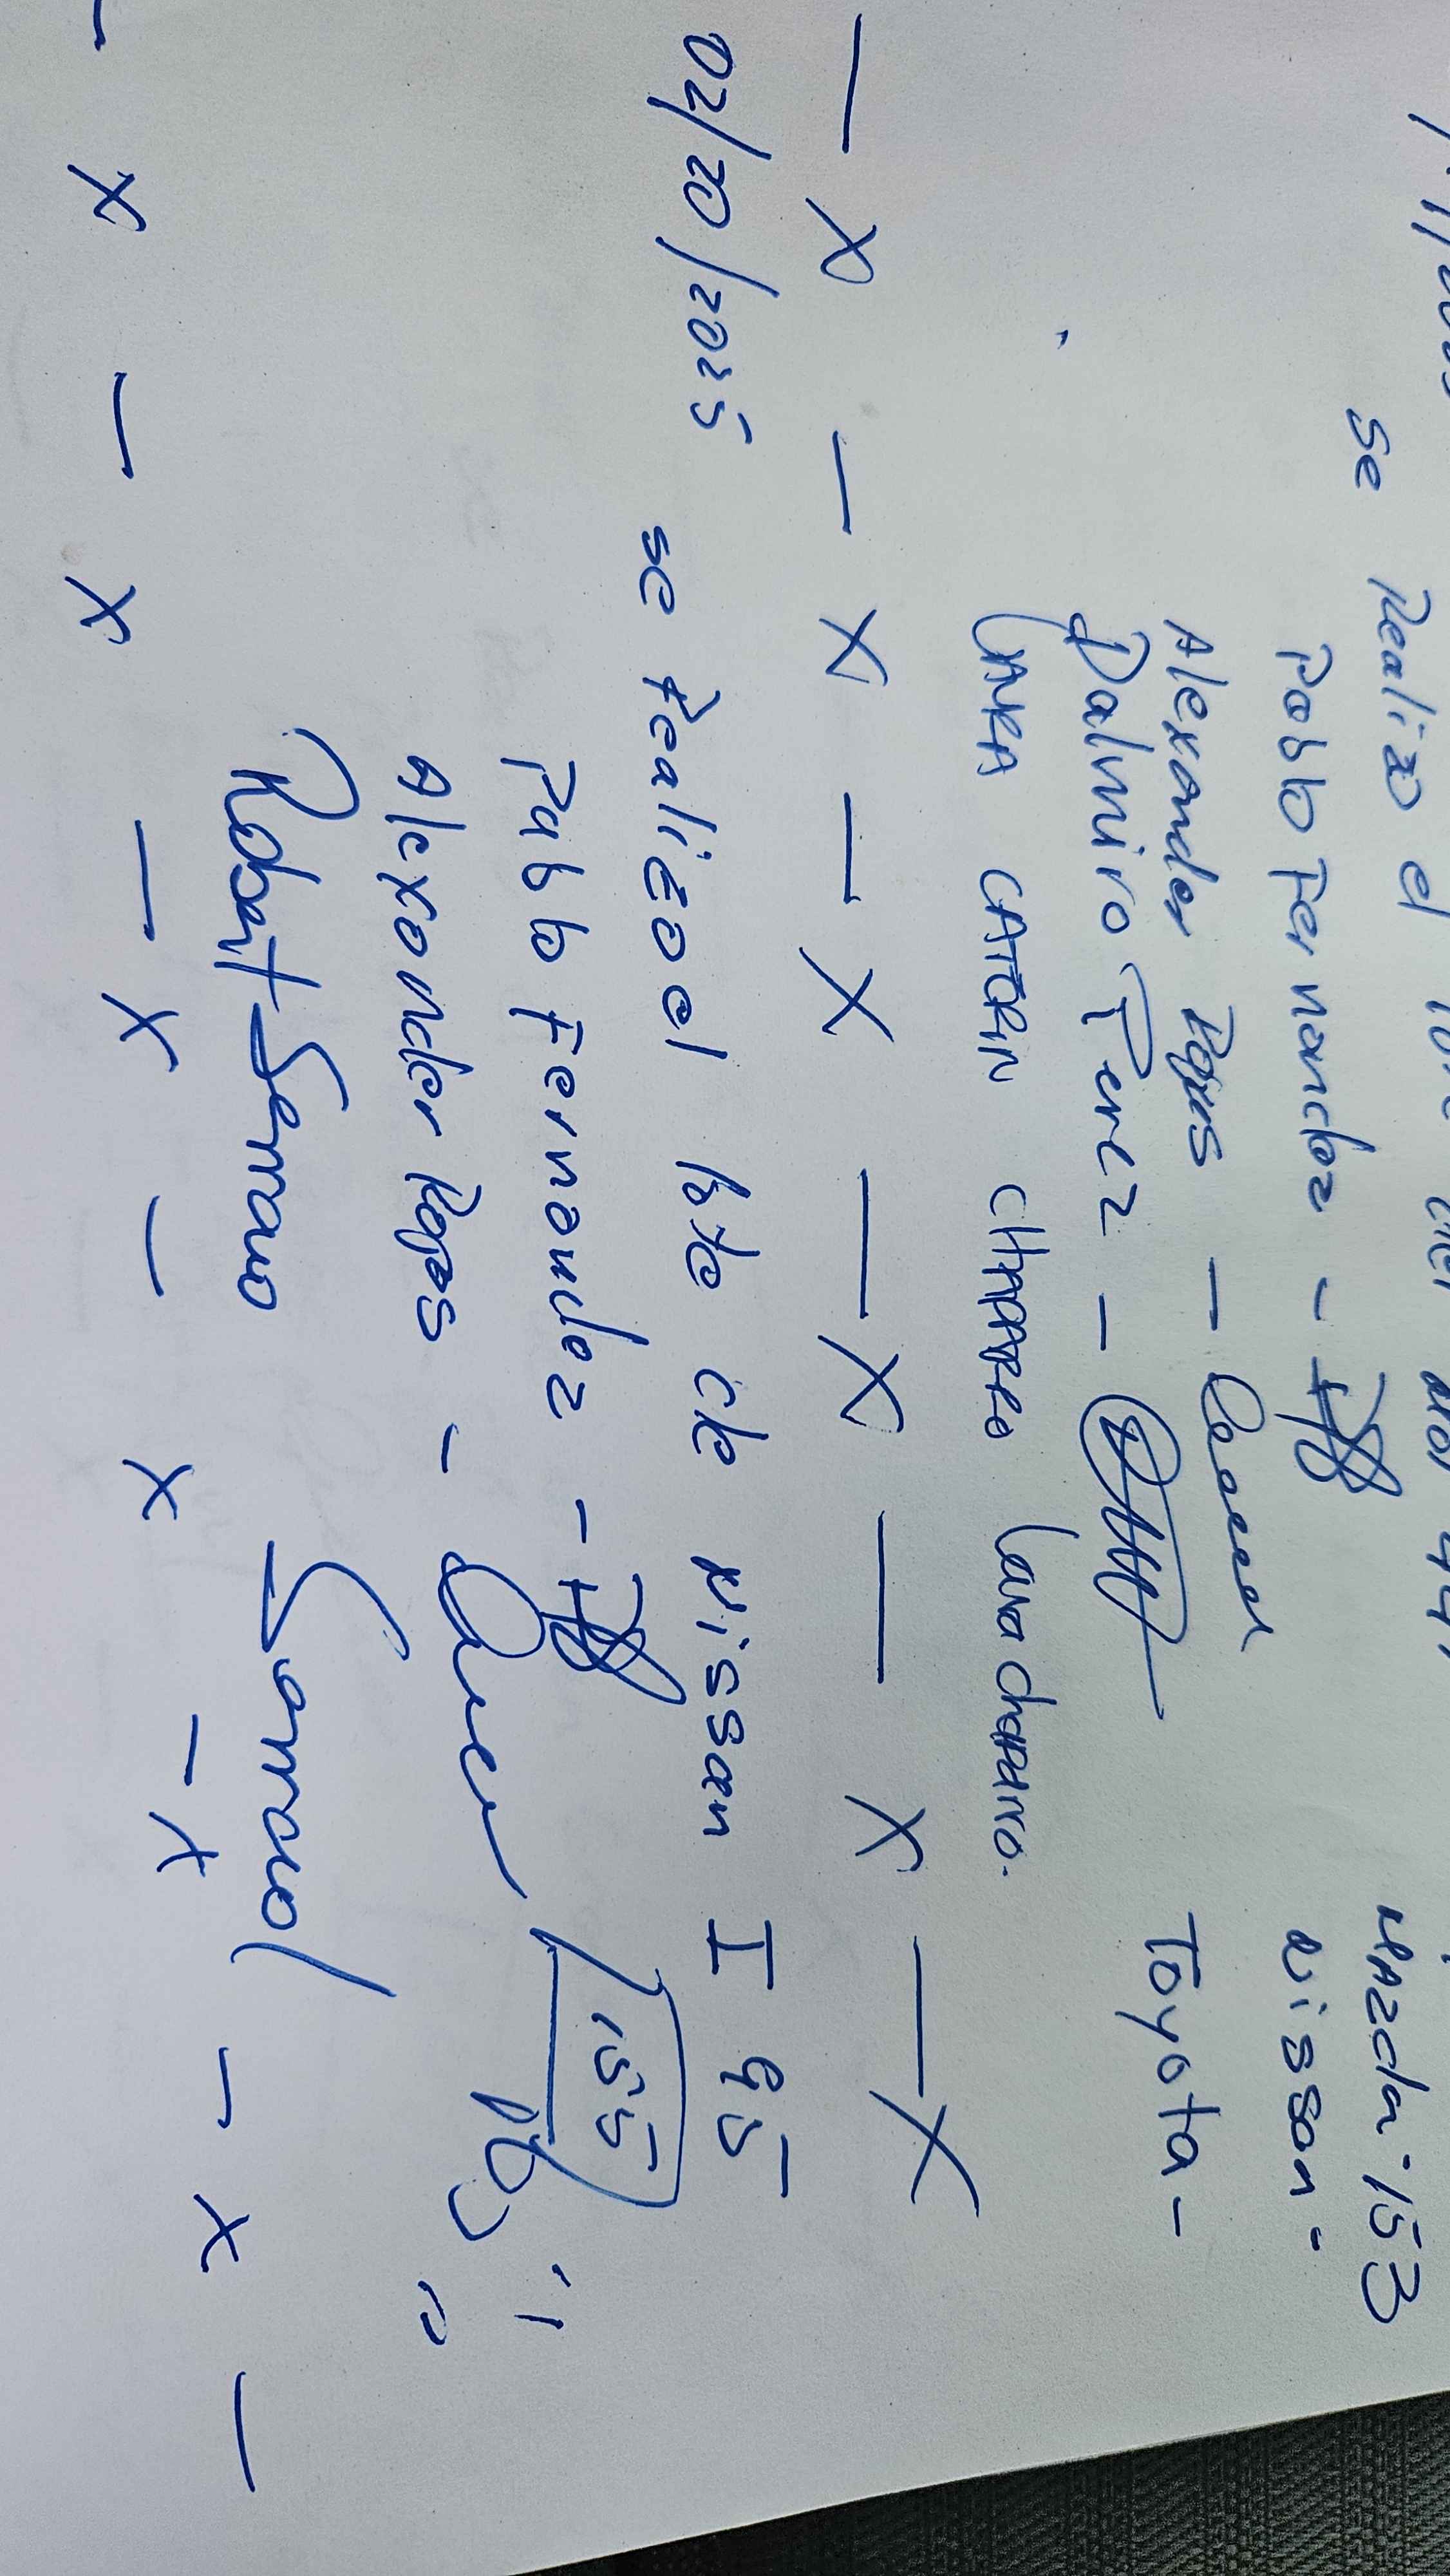 se Realizo el
Mazda: 153
Pablo Fernandez -
Nissan -
Alexander Rojas -
Toyota -
Dalmiro Perez -
LAURA CATERIN CHAPARRO Laura Chaparro.
— X — X — X — X — X — X
02/20/2025 se Realizo el lote de Nissan I 95
Pablo Fernandez -
155
Alexander Rojas -
Robert Serrano Serrano
— X — X — X — X — X — X —